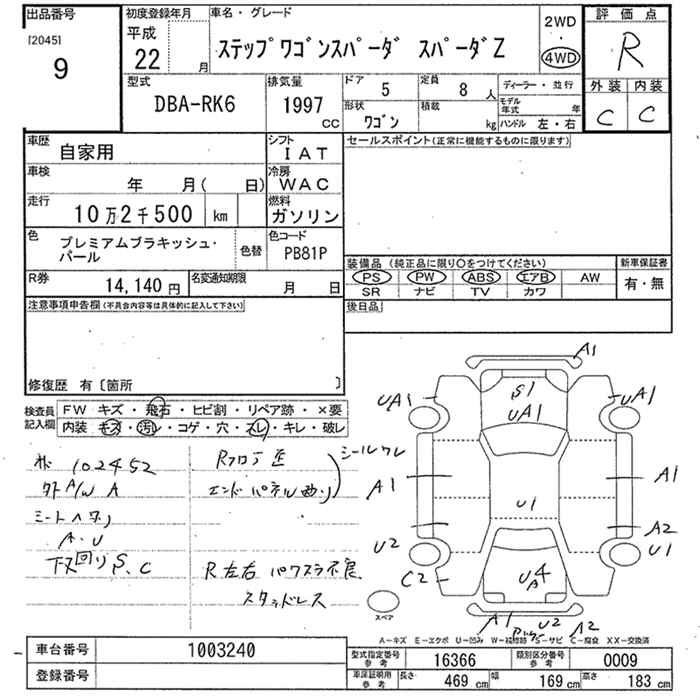 出品番号
[2045]
9
初度登録年月
平成
22 月
車名・グレード
ステップワゴンスパーダ スパーダZ
2WD
・
4WD
評価点
R
外装 内装
C C
型式
DBA-RK6
排気量
1997 CC
ドア 5
定員 8 人
形状 ワゴン
積載 kg
ディーラー・並行
モデル年式 年
ハンドル 左・右
車歴 自家用
シフト IAT
車検 年 月( 日)
冷房 WAC
走行 10万2千500 km
燃料 ガソリン
色 プレミアムブラキッシュ・
パール
色替
色コード PB81P
R券 14,140円
名変通知期限 月 日
セールスポイント(正常に機能するものに限ります)
装備品(純正品に限り〇をつけてください)
新車保証書
PS PW ABS エアB AW
有・無
SR ナビ TV カワ
後日品
注意事項申告欄(不具合内容等は具体的に記入して下さい)
修復歴 有〔箇所 〕
検査員
記入欄
FW キズ・飛石・ヒビ割・リペア跡・×要
内装 キズ・汚レ・コゲ・穴・スレ・キレ・破レ
102452
A/W A
A・U
下回りS、C
Rフロア歪
エンドパネル曲り
シールワレ
R左右パワスラ不良
スタッドレス
A1
UA1
S1
UA1
UA1
A1
U1
A1
A2
U2
U1
C2
U4
A
A1
U2
A2
スペア
A-キズ E-エクボ U-凹み W-補修跡 S-サビ C-腐食 XX-交換済
車台番号 1003240
登録番号
型式指定番号
参考
16366
類別区分番号
参考
0009
車庫証明用
参考
長さ 469 cm
幅 169 cm
高さ 183 cm